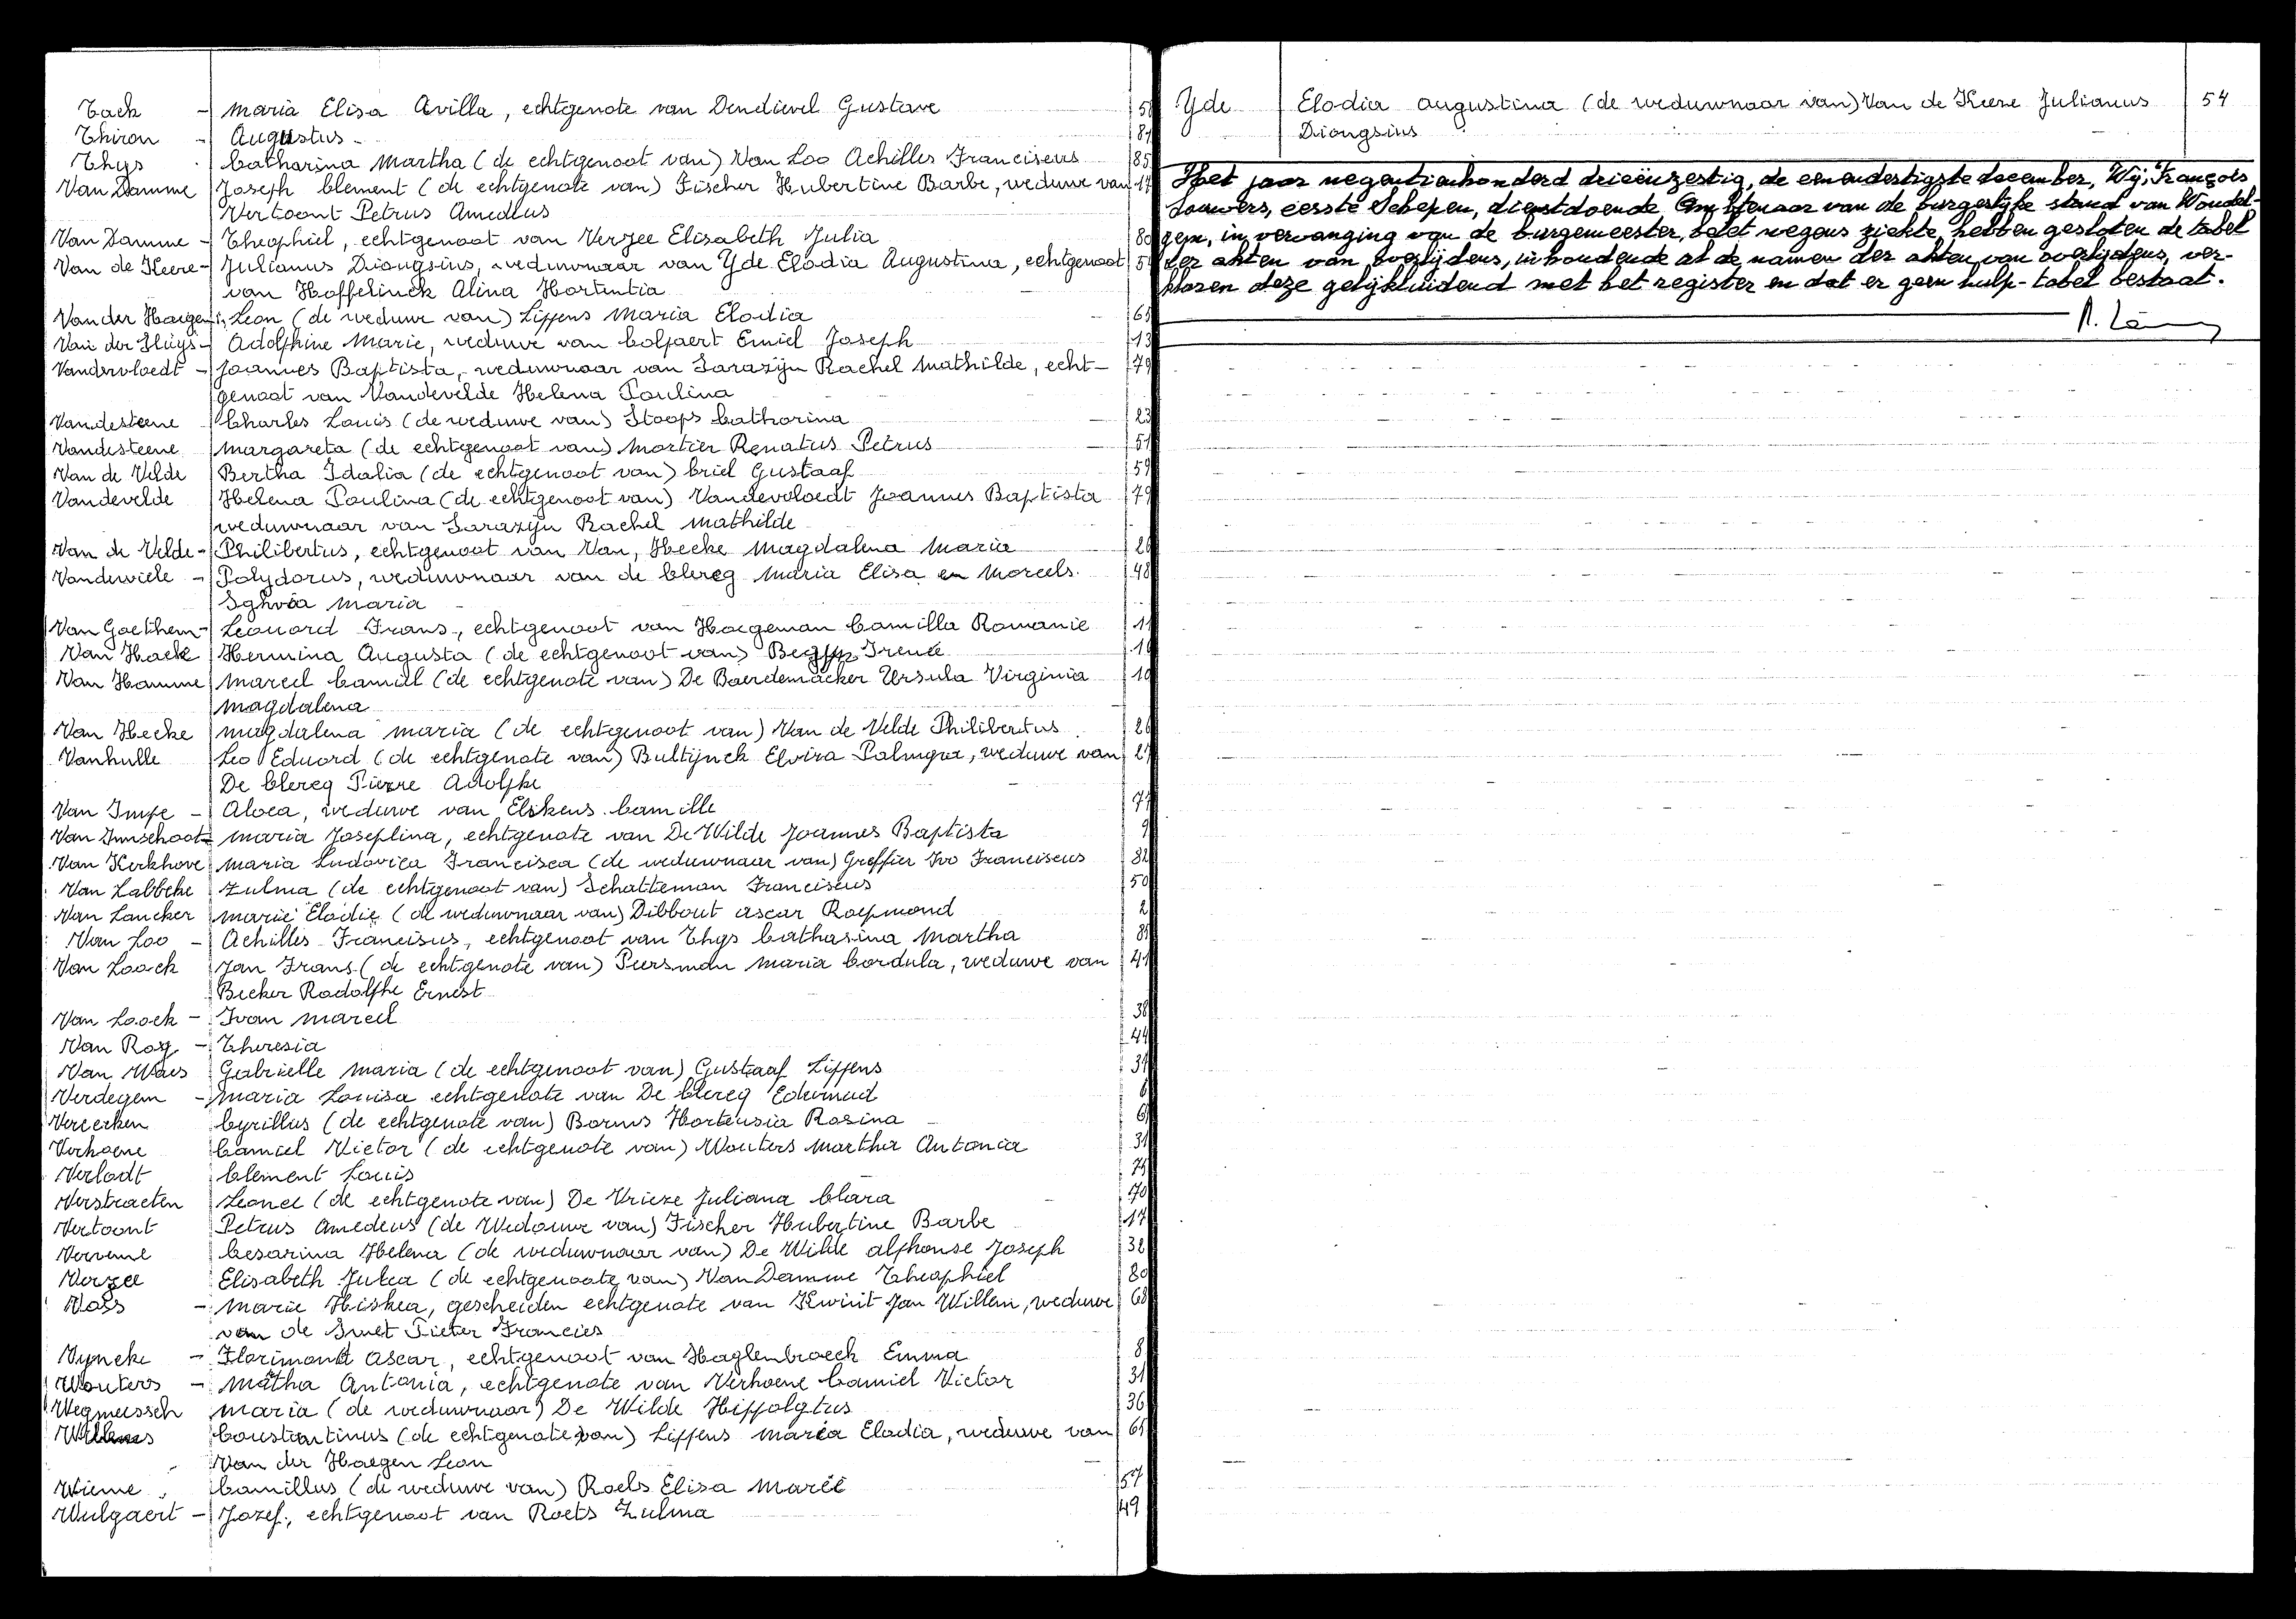 Tack - Maria Elisa Avilla, echtgenote van Dendievel Gustave
Thiron - Augustus - 84
Thys Catharina Martha (de echtgenoot van) Van Loo Achilles Franciscus 85
Van Damme Joseph Clement (de echtgenote van) Fischer Hubertine Barbe, weduwe van 17
Vertoont Petrus Amedeus
Van Damme - Theophiel, echtgenoot van Verzee Elisabeth Julia 80
Van de Keere - Julianus Dionysius, weduwnaar van Yde Elodia Augustina, echtgenoot
van Hoffelinck Alina Hortentia
Van der Haegen Leon (de weduwe van) Lippens Maria Elodia
Van der Sluys - Adolphine Marie, weduwe van Colpaert Emiel Joseph 13
Vandervloedt - Joannes Baptista, weduwnaar van Sarazijn Rachel Mathilde, echt- 79
genoot van Vandevelde Helena Paulina
Vandesteene Charles Louis (de weduwe van) Stoops Catharina 23
Vandesteene Margareta (de echtgenoot van) Mortier Renatus Petrus 51
Van de Velde Bertha Idalia (de echtgenoot van) Criel Gustaaf 59
Vandevelde Helena Paulina (de echtgenoot van) Vandevoloedt Joannes Baptista 79
weduwnaar van Sarazijn Rachel Mathilde
Van de Velde - Philibertus, echtgenoot van Van Hecke Magdalena Maria 26
Vandewiele - Polydorus, weduwnaar van de Clercq Maria Elisa en Morels 48
Sylvia Maria
Van Goethem - Leonard Frans, echtgenoot van Hoegeman Camilla Romanie 11
Van Haele Hermina Augusta (de echtgenoot van) Irenée
Van Hamme Marcel Camiel (de echtgenote van) De Baerdemacker Ursula Virginia 10
Magdalena
Van Hecke Magdalena Maria (de echtgenoot van) Van de Velde Philibertus 26
Vanhulle Leo Eduard (de echtgenote van) Bultijnck Elvira Palmyra, weduwe van 27
De Clercq Pierre Adolphe
Van Impe - Aloea, weduwe van Elskens Camille
Van Imschoot - Maria Josephina, echtgenote van De Wilde Joannes Baptista 9
Van Kerkhove Maria Ludovica Francisca (de weduwnaar van) Greffier Ivo Franciscus 82
Van Labbeke Zulma (de echtgenoot van) Schatteman Franciscus 50
Van Lancker Marie Elodie (de weduwnaar van) Dibbout Oscar Raymond 2
Van Loo - Achilles Francisus, echtgenoot van Thys Catharina Martha 85
Van Loock Jan Frans (de echtgenote van) Piersman Maria Cordula, weduwe van 41
Becker Rodolphe Ernest
Van Loock - Ivan Marcel 38
Van Roy - Theresia 44
Van Waes Gabrielle Maria (de echtgenoot van) Gustaaf Lippens
Verdegem - Maria Louisa echtgenote van De Clercq Edmond
Vereerken Cyrillus (de echtgenote van) Borms Hortensia Rosina
Verhoene Camiel Victor (de echtgenote van) Wouters Martha Antonia 31
Verlodt Clement Louis
Verstraeten Leonce (de echtgenote van) De Vrieze Juliana Clara 70
Vertoont Petrus Amedeus (de Wedouwe van) Fischer Hubertine Barbe 17
Vervenne Cesarina Helena (de weduwnaar van) De Wilde Alphonse Joseph 32
Verzee Elisabeth Julia (de echtgenoote van) Van Damme Theophiel 80
Voss - Marie Hiskea, gescheiden echtgenote van Kwint Jan Willem, weduwe 68
van de Smet Pieter Francies
Vyncke - Florimond Oscar, echtgenoot van Haglenbroeck Emma 8
Wouters - Matha Antonia, echtgenote van Verhoene Camiel Victor 31
Weymeersch Maria (de weduwnaar) De Wilde Hippolytus 36
Willems Constantinus (de echtgenote van) Lippens Maria Elodia, weduwe van
Van der Haegen Leon
Wieme Camillus (de weduwe van) Roels Elisa Marie 57
Wulgaert - Jozef, echtgenoot van Roets Zulma 49
Yde Elodia Augustina (de weduwnaar van) Van de Keere Julianus 54
Dionysius
Het jaar negentienhonderd drieënzestig, de eenendertigste december, Wij, François
Louwers, eerste Schepen, dienstdoende Ambtenaar van de burgerlijke stand van Wondel-
gem, in vervanging van de burgemeester, belet wegens ziekte, hebben gesloten de tabel
der akten van overlijdens, inhoudende al de namen der akten van overlijdens, ver-
klaren deze gelijkluidend met het register en dat er geen hulp-tabel bestaat.